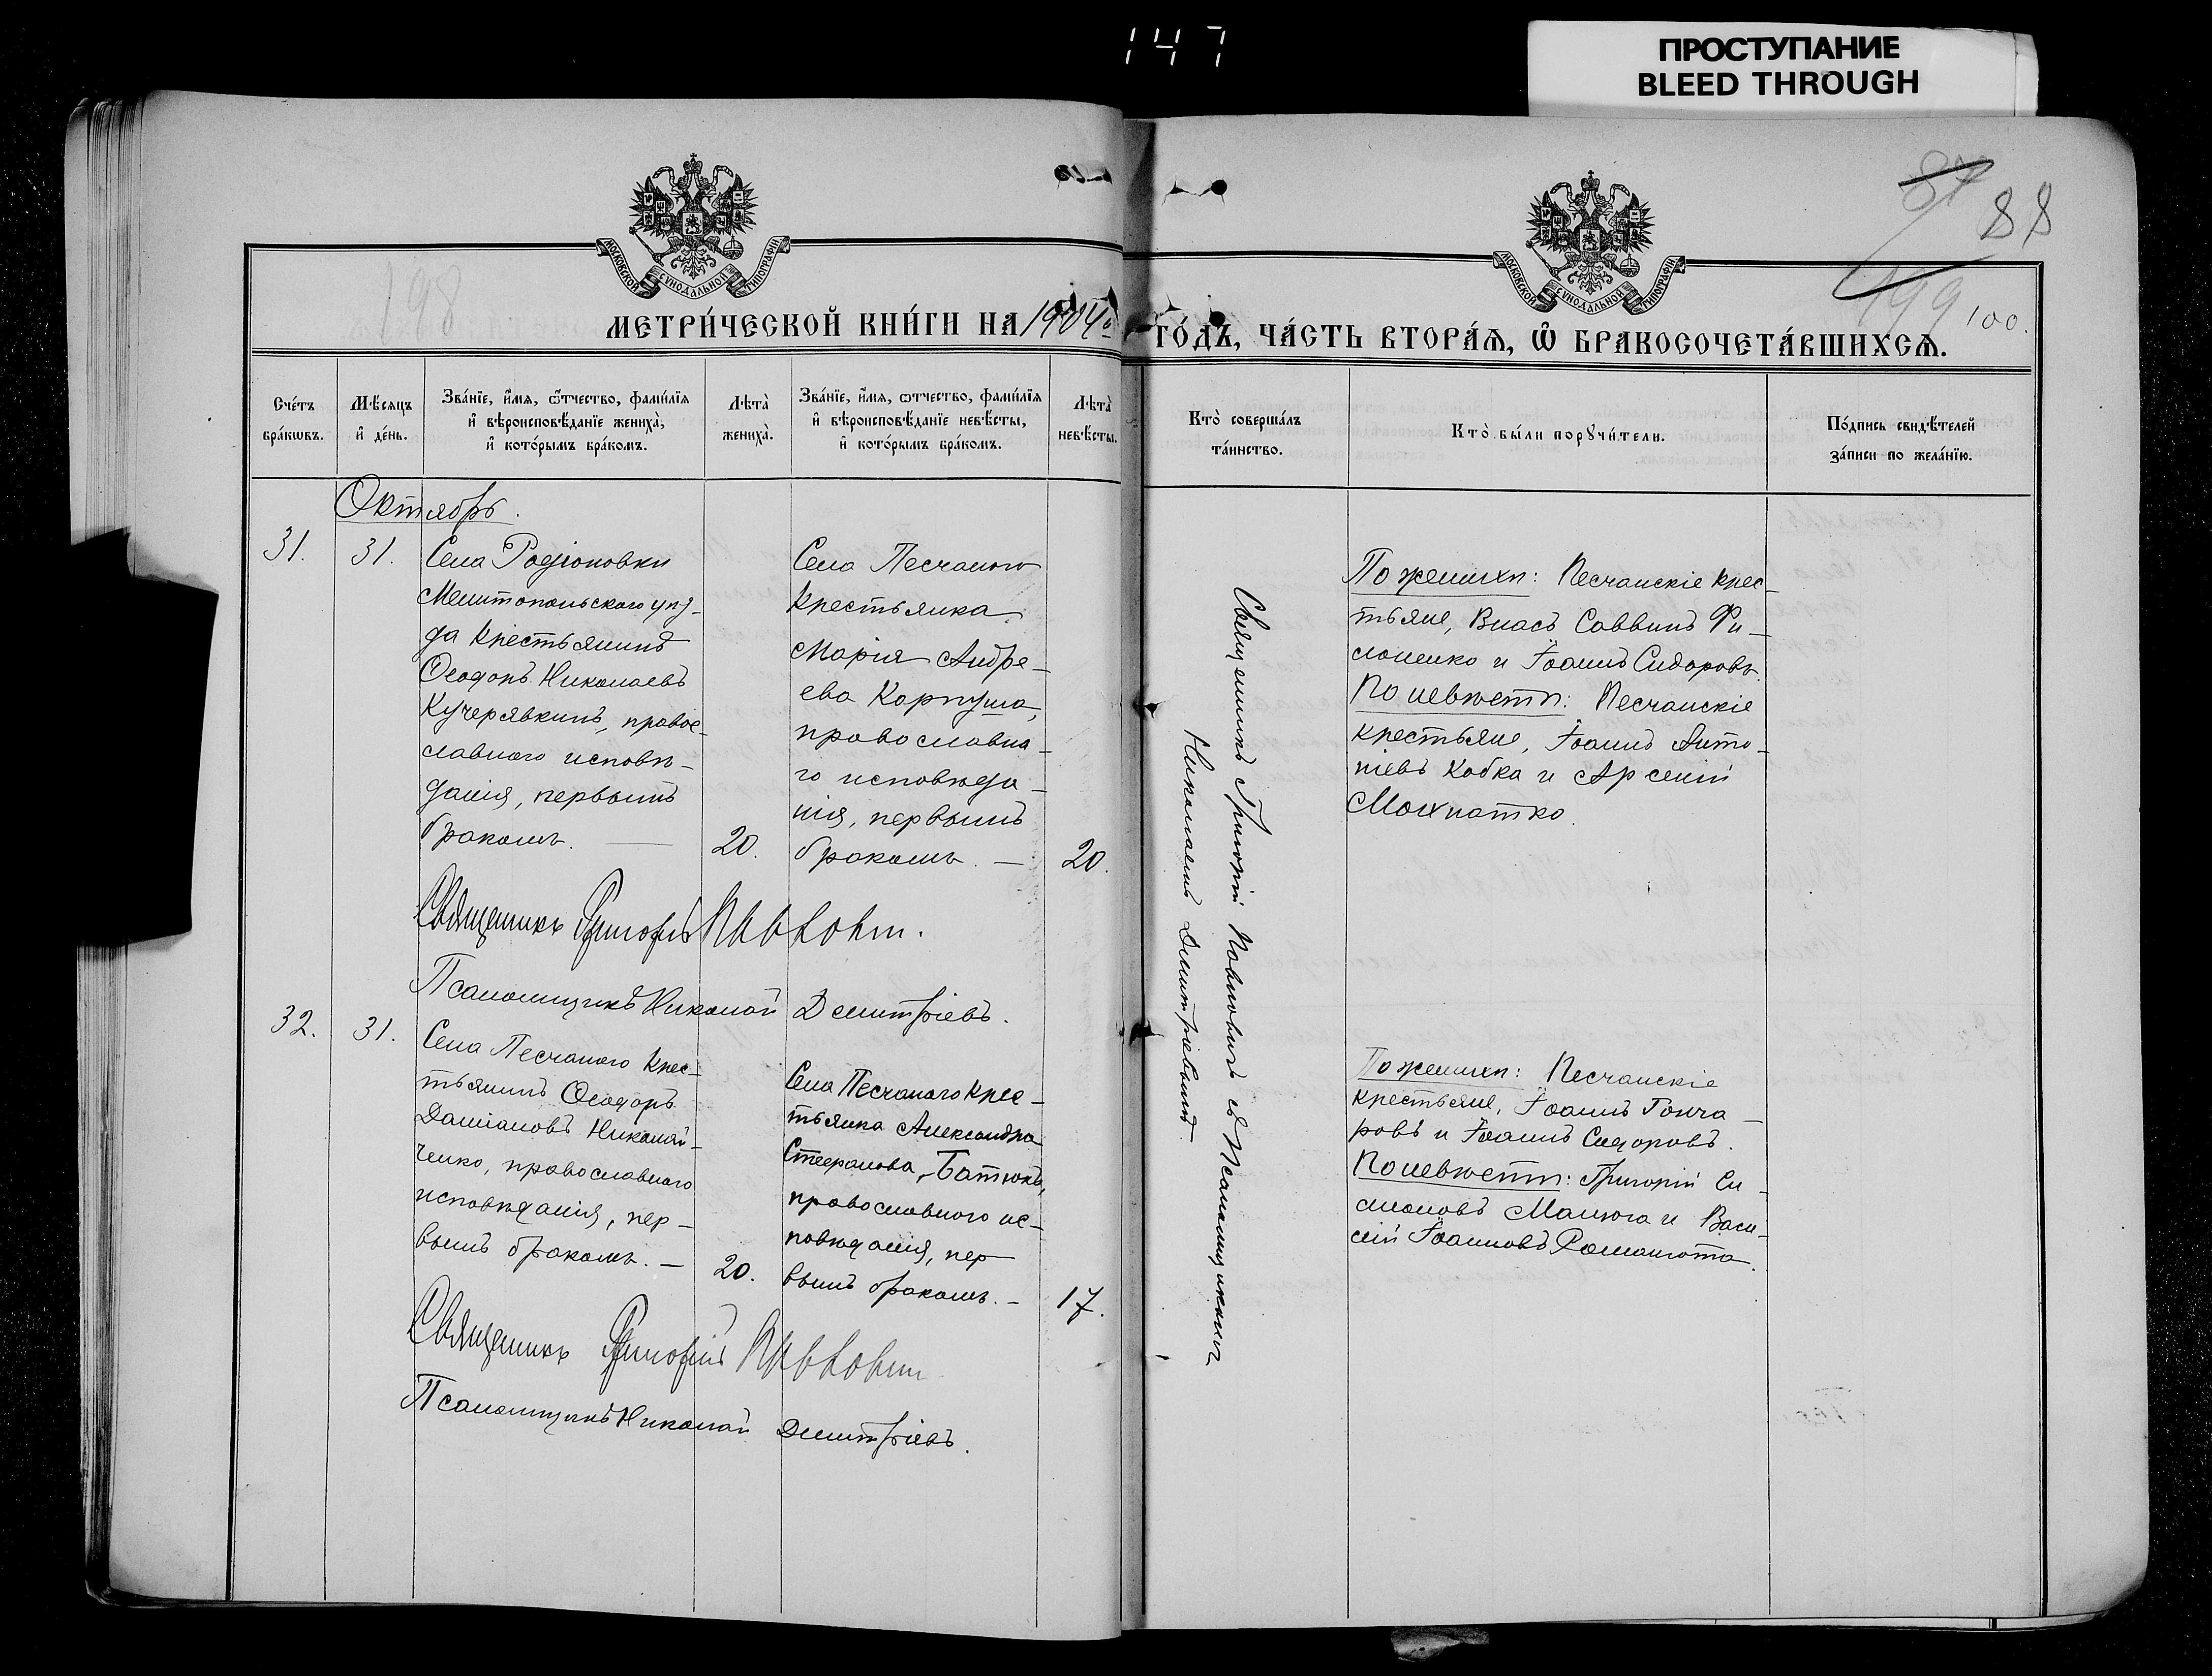 147
ПРОСТУПАНИЕ
BLEED THROUGH
87
88
198
199
100.
МОСКОВСКОЙ СѴНОДАЛЬНОЙ ТИПОГРАФІИ
МОСКОВСКОЙ СѴНОДАЛЬНОЙ ТИПОГРАФІИ
МЕТРИ́ЧЕСКОЙ КНИ́ГИ НА 1904й
ГО́ДЪ, ЧА́СТЬ ВТОРА́Ѧ, Ѽ БРАКОСОЧЕТА́ВШИХСѦ.
Сче́тъ
бра́кѡвъ.
Мѣ́сѧцъ
и҆ де́нь.
Зва́нїе, и҆́мѧ, ѻ҆́тчество, фами́лїѧ
и҆ вѣроисповѣ́данїе жениха̀,
и҆ кото́рымъ бра́комъ.
Лѣта̀
жениха̀.
Зва́нїе, и҆́мѧ, ѻ҆́тчество, фами́лїѧ
и҆ вѣроисповѣ́данїе невѣ́сты,
и҆ кото́рымъ бра́комъ.
Лѣта̀
невѣ́сты.
Кто̀ соверша́лъ
та́инство.
Кто̀ бы́ли порꙋчи́тели.
По́дпись свидѣ́телей
за́писи по жела́нїю.
Октябрь.
31.
31.
Села Родіоновки
Мелитопольского уѣз-
да крестьянинъ
Ѳеодоръ Николаевъ
Кучерявкинъ, право-
славного исповѣ-
данія, первымъ
бракомъ.
20.
Села Песчаного
крестьянка
Марія Андре-
ева Карпуша,
православна-
го исповѣда-
нія, первымъ
бракомъ. —
20.
Священникъ Григорій Павловичъ съ Псаломщикомъ
Николаемъ Димитріевымъ.
По женихѣ: Песчанскіе крес-
тьяне, Власъ Саввинъ Фи-
лоненко и Іоаннъ Сидоровъ.
По невѣстѣ: Песчанскіе
крестьяне, Іоаннъ Анто-
ніевъ Кобка и Арсеній
Мохнатко.
Священникъ Григорій Павловичъ.
Псаломщикъ Николай Димитріевъ.
32.
31.
Села Песчаного крес-
тьянинъ Ѳеодоръ
Даміановъ Николай-
ченко, православного
исповѣданія, пер-
вымъ бракомъ. —
20.
Села Песчаного крес-
тьянка Александра
Стефанова Батюкъ,
православного ис-
повѣданія, пер
вымъ бракомъ. —
17.
По женихѣ: Песчанскіе
крестьяне, Іоаннъ Гонча-
ровъ и Іоаннъ Сидоровъ.
По невѣстѣ: Григорій Си-
моновъ Малюга и Васи-
лій Іоанновъ Романюта.
Священникъ Григорій Павловичъ
Псаломщикъ Николай Димитріевъ.